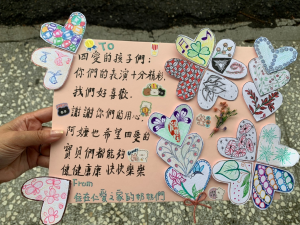 TO
四愛的孩子們:
你們的表演十分精彩,
我們好喜歡.
謝謝你們的用心.
阿嬤也希望四愛的
寶貝們都能好
健健康康 快快樂樂
From
在仁愛之家的 們